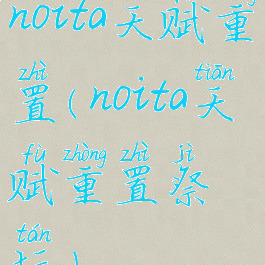 noita天赋重
zhì tiān
置(noita天
fù zhòng zhì jì
赋重置祭
tán
坛)